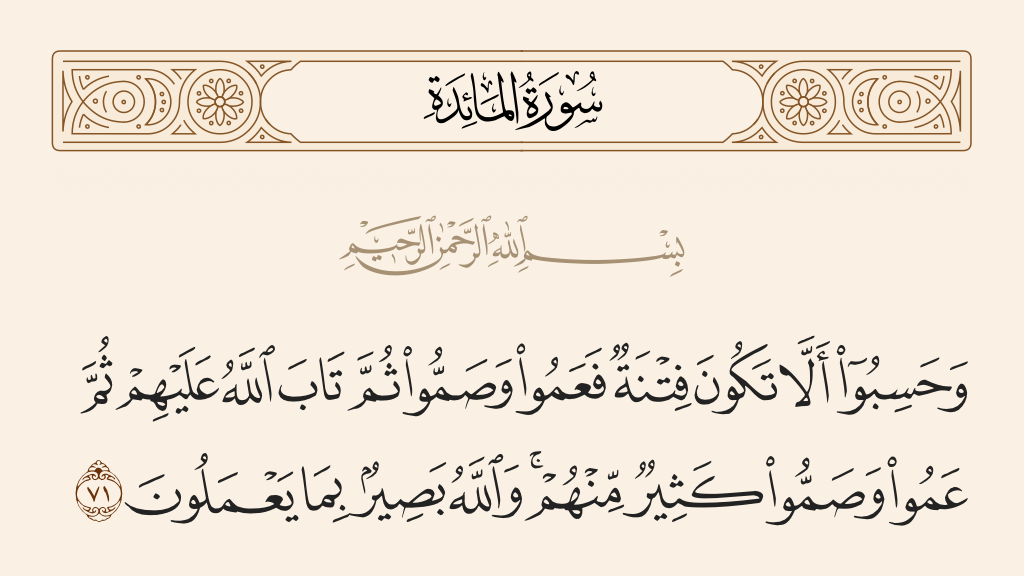 سُورَةُ المَائِدَةِ
بِسْمِ ٱللَّهِ ٱلرَّحْمَٰنِ ٱلرَّحِيمِ
وَحَسِبُوٓا۟ أَلَّا تَكُونَ فِتْنَةٌ فَعَمُوا۟ وَصَمُّوا۟ ثُمَّ تَابَ ٱللَّهُ عَلَيْهِمْ ثُمَّ
عَمُوا۟ وَصَمُّوا۟ كَثِيرٌ مِّنْهُمْ ۚ وَٱللَّهُ بَصِيرٌۢ بِمَا يَعْمَلُونَ ٧١